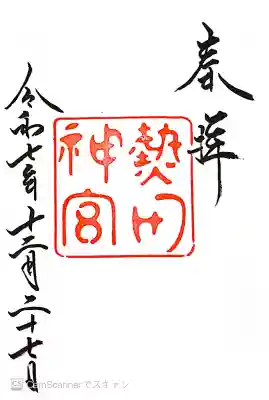 奉拝
熱田
神宮
令和七年十二月二十七日
CamScannerでスキャン